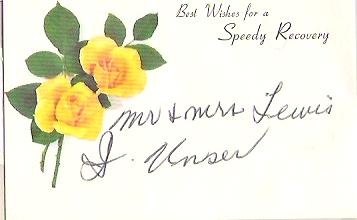 Best Wishes for a
Speedy Recovery
Mr & Mrs Lewis
D. Unser